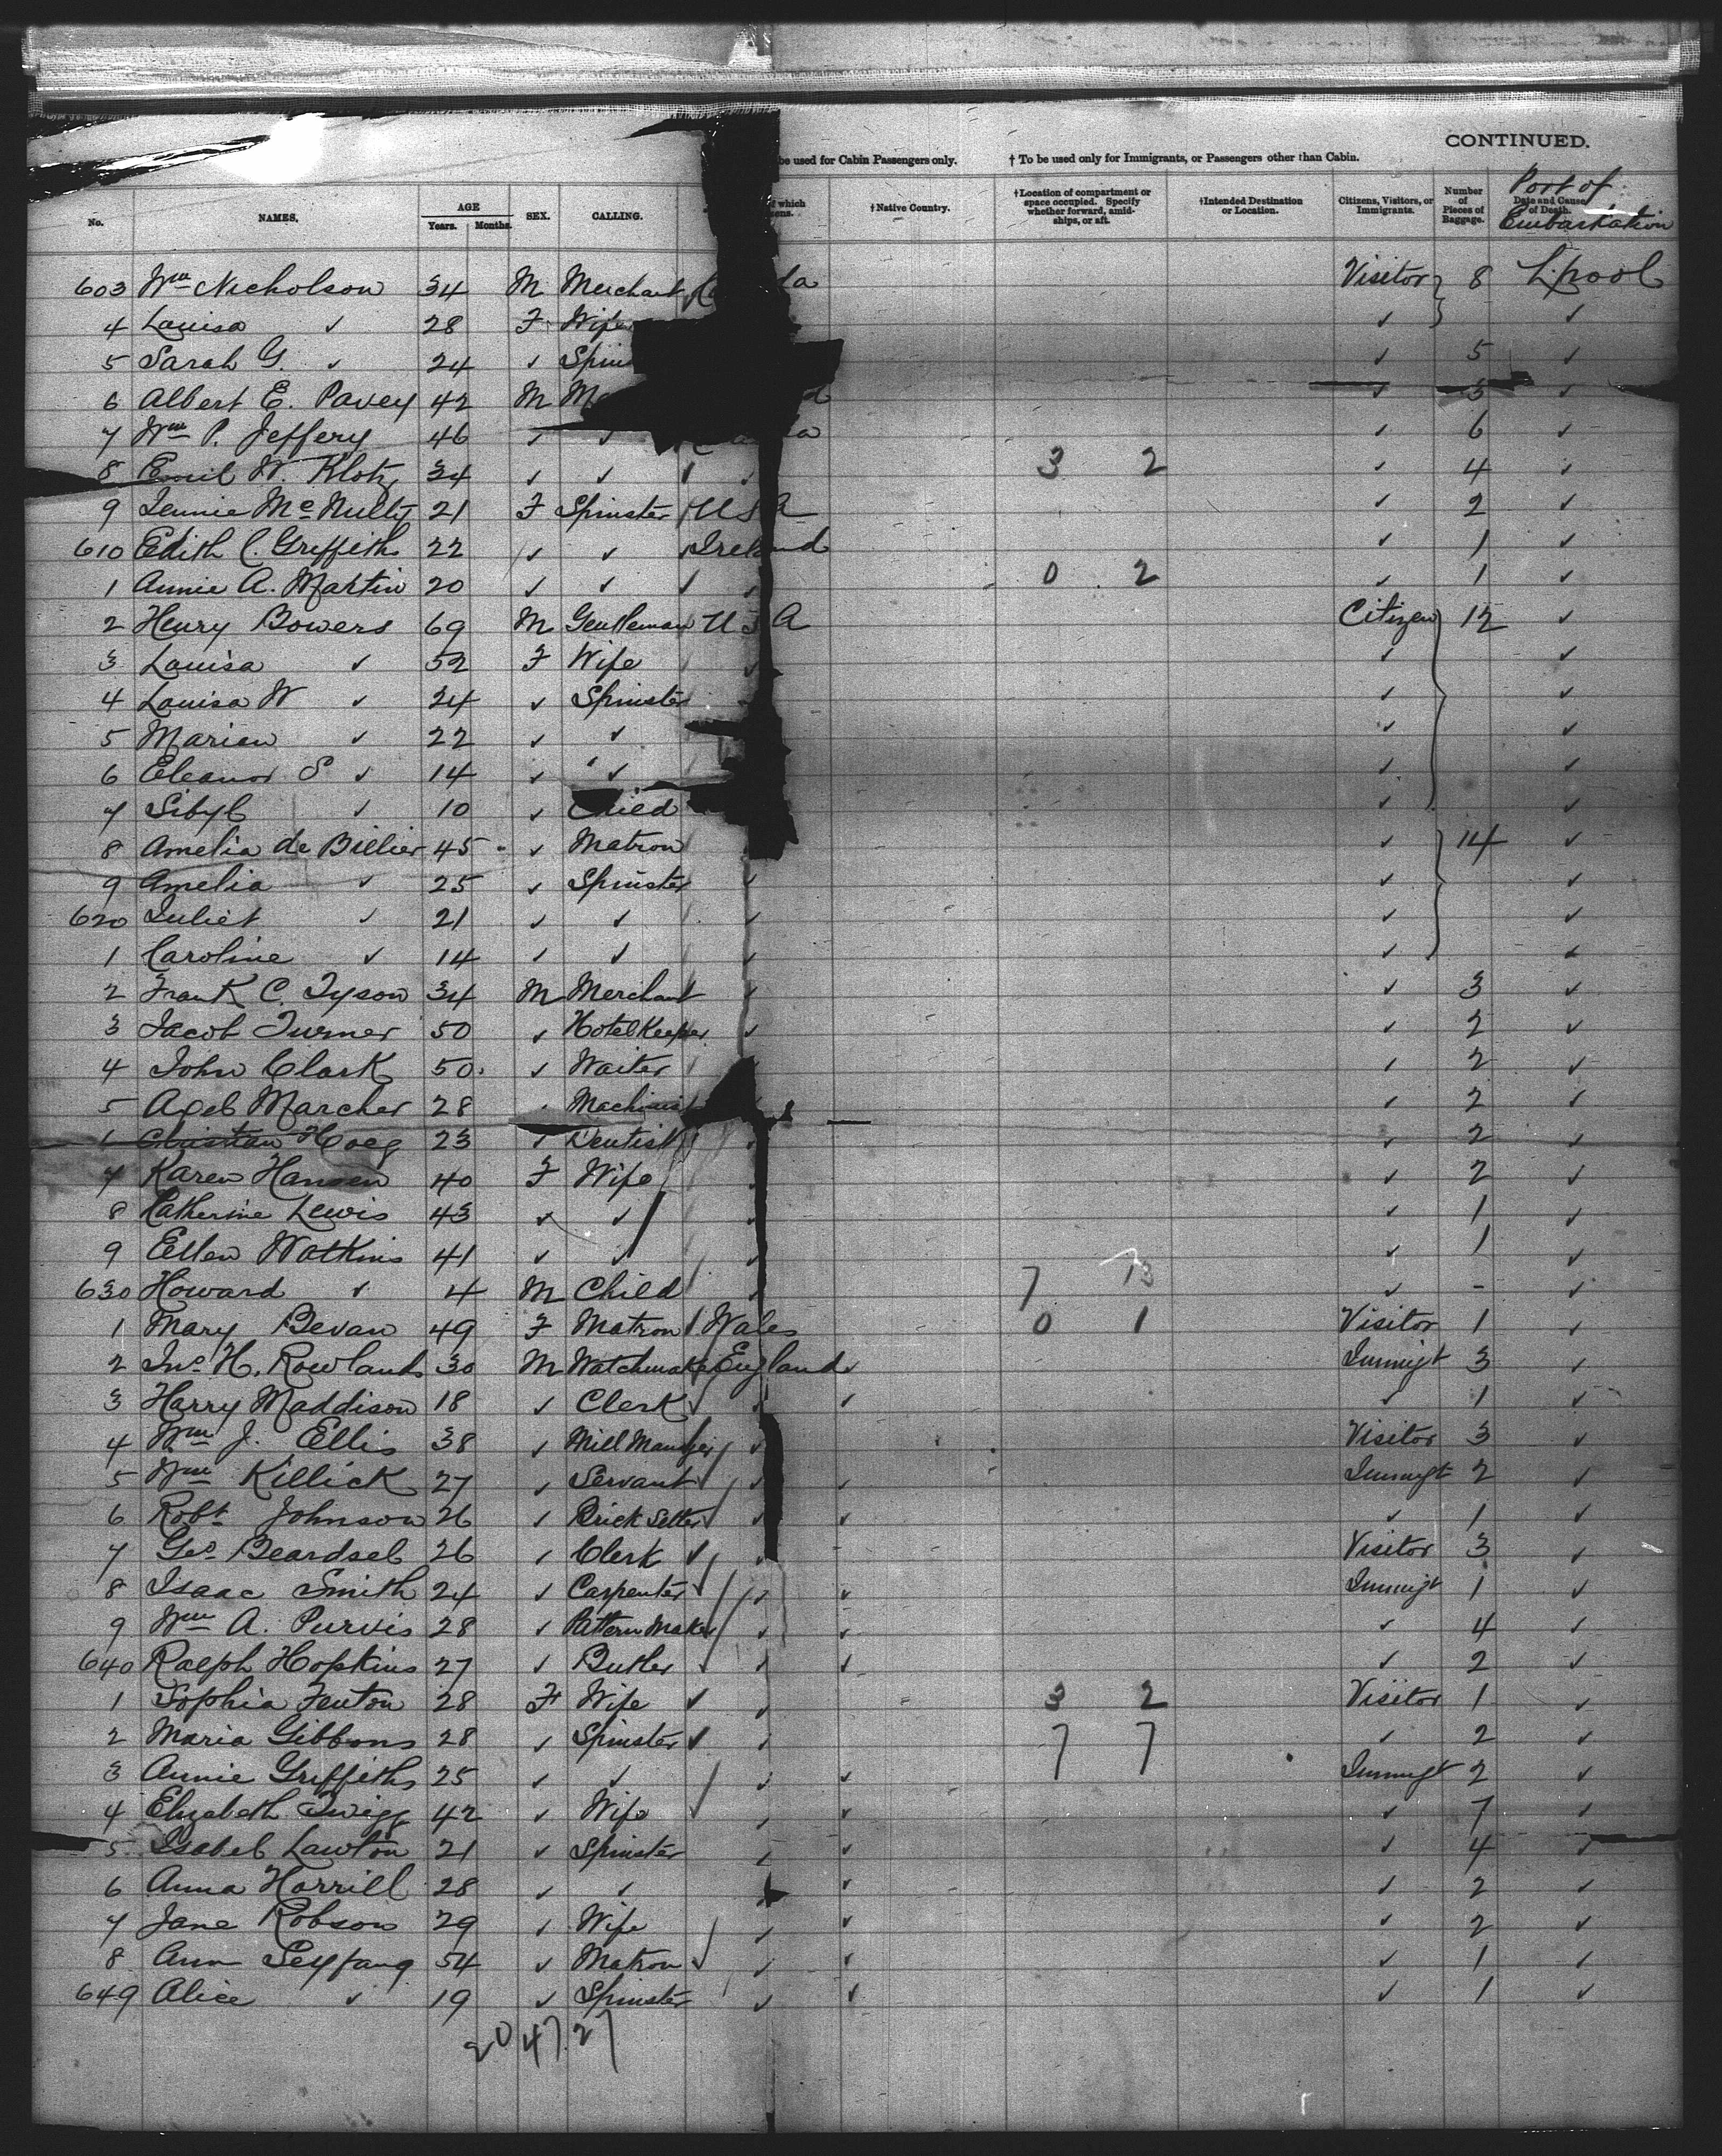 CONTINUED.
be used for Cabin Passengers only. † To be used only for Immigrants, or Passengers other than Cabin.
No. NAMES. AGE Years. Months. SEX. CALLING. of which †Native Country. †Location of compartment or space occupied. Specify whether forward, amid-ships, or aft. †Intended Destination or Location. Citizens, Visitors, or Immigrants. Number of Pieces of Baggage. Date and Cause of Death. Port of Embarkation
603 Wm Nicholson 34 M Merchant Visitor 8 L'pool
4 Louisa ✓ 28 F Wife ✓ ✓
5 Sarah G. ✓ 24 ✓ ✓ 5 ✓
6 Albert E. Pavey 42 M ✓ 3 ✓
7 Wm P. Jeffery 46 ✓ ✓ ✓ 6 ✓
8 Emil W. Klotz 34 ✓ ✓ ✓ 3 2 ✓ 4 ✓
9 Jennie McNulty 21 F Spinster USA ✓ 2 ✓
610 Edith C. Griffiths 22 ✓ ✓ Ireland ✓ 1 ✓
1 Annie A. Martin 20 ✓ ✓ ✓ 0 2 ✓ 1 ✓
2 Henry Bowers 69 M Gentleman USA Citizen 12 ✓
3 Louisa ✓ 52 F Wife ✓ ✓ ✓
4 Louisa W ✓ 24 ✓ Spinster ✓ ✓
5 Marien ✓ 22 ✓ ✓ ✓ ✓
6 Eleanor S ✓ 14 ✓ ✓ ✓ ✓
7 Sibyl ✓ 10 ✓ Child ✓ ✓
8 Amelia de Billier 45 ✓ Matron ✓ 14 ✓
9 Amelia ✓ 25 ✓ Spinster ✓ ✓ ✓
620 Juliet ✓ 21 ✓ ✓ ✓ ✓ ✓
1 Caroline ✓ 14 ✓ ✓ ✓ ✓ ✓
2 Frank C. Tyson 34 M Merchant ✓ ✓ 3 ✓
3 Jacob Turner 50 ✓ Hotel Keeper ✓ ✓ 2 ✓
4 John Clark 50 ✓ Waiter ✓ 2 ✓
5 Axel Marcher 28 ✓ Machinist ✓ 2 ✓
6 Christian Hoeg 23 ✓ Dentist ✓ ✓ 2 ✓
7 Karen Hansen 40 F Wife ✓ ✓ 2 ✓
8 Catherine Lewis 43 ✓ ✓ ✓ ✓ 1 ✓
9 Ellen Watkins 41 ✓ ✓ ✓ ✓ 1 ✓
630 Howard ✓ 4 M Child ✓ 7 13 ✓ - ✓
1 Mary Bevan 49 F Matron Wales 0 1 Visitor 1 ✓
2 Jno H. Rowlands 30 M Watchmaker England ✓ Immigt 3 ✓
3 Harry Maddison 18 ✓ Clerk ✓ ✓ ✓ 1 ✓
4 Wm J. Ellis 38 ✓ Mill Manager ✓ Visitor 3 ✓
5 Wm Killick 27 ✓ Servant ✓ ✓ Immigt 2 ✓
6 Robt Johnson 26 ✓ Brick Setter ✓ ✓ ✓ 1 ✓
7 Geo Beardsel 26 ✓ Clerk ✓ Visitor 3 ✓
8 Isaac Smith 24 ✓ Carpenter ✓ ✓ Immigt 1 ✓
9 Wm A. Purvis 28 ✓ Pattern Maker ✓ ✓ ✓ 4 ✓
640 Ralph Hopkins 27 ✓ Butler ✓ ✓ ✓ 2 ✓
1 Sophia Fenton 28 F Wife ✓ 3 2 Visitor 1 ✓
2 Maria Gibbons 28 ✓ Spinster ✓ 7 7 ✓ 2 ✓
3 Annie Griffiths 25 ✓ ✓ ✓ ✓ Immigt 2 ✓
4 Elizabeth Twigg 42 ✓ Wife ✓ ✓ ✓ 7 ✓
5 Isabel Lawton 21 ✓ Spinster ✓ ✓ ✓ 4 ✓
6 Anna Horrill 28 ✓ ✓ ✓ ✓ 2 ✓
7 Jane Robson 29 ✓ Wife ✓ ✓ ✓ 2 ✓
8 Ann Seyfang 54 ✓ Matron ✓ ✓ ✓ 1 ✓
649 Alice ✓ 19 ✓ Spinster ✓ ✓ ✓ 1 ✓
20 47 27